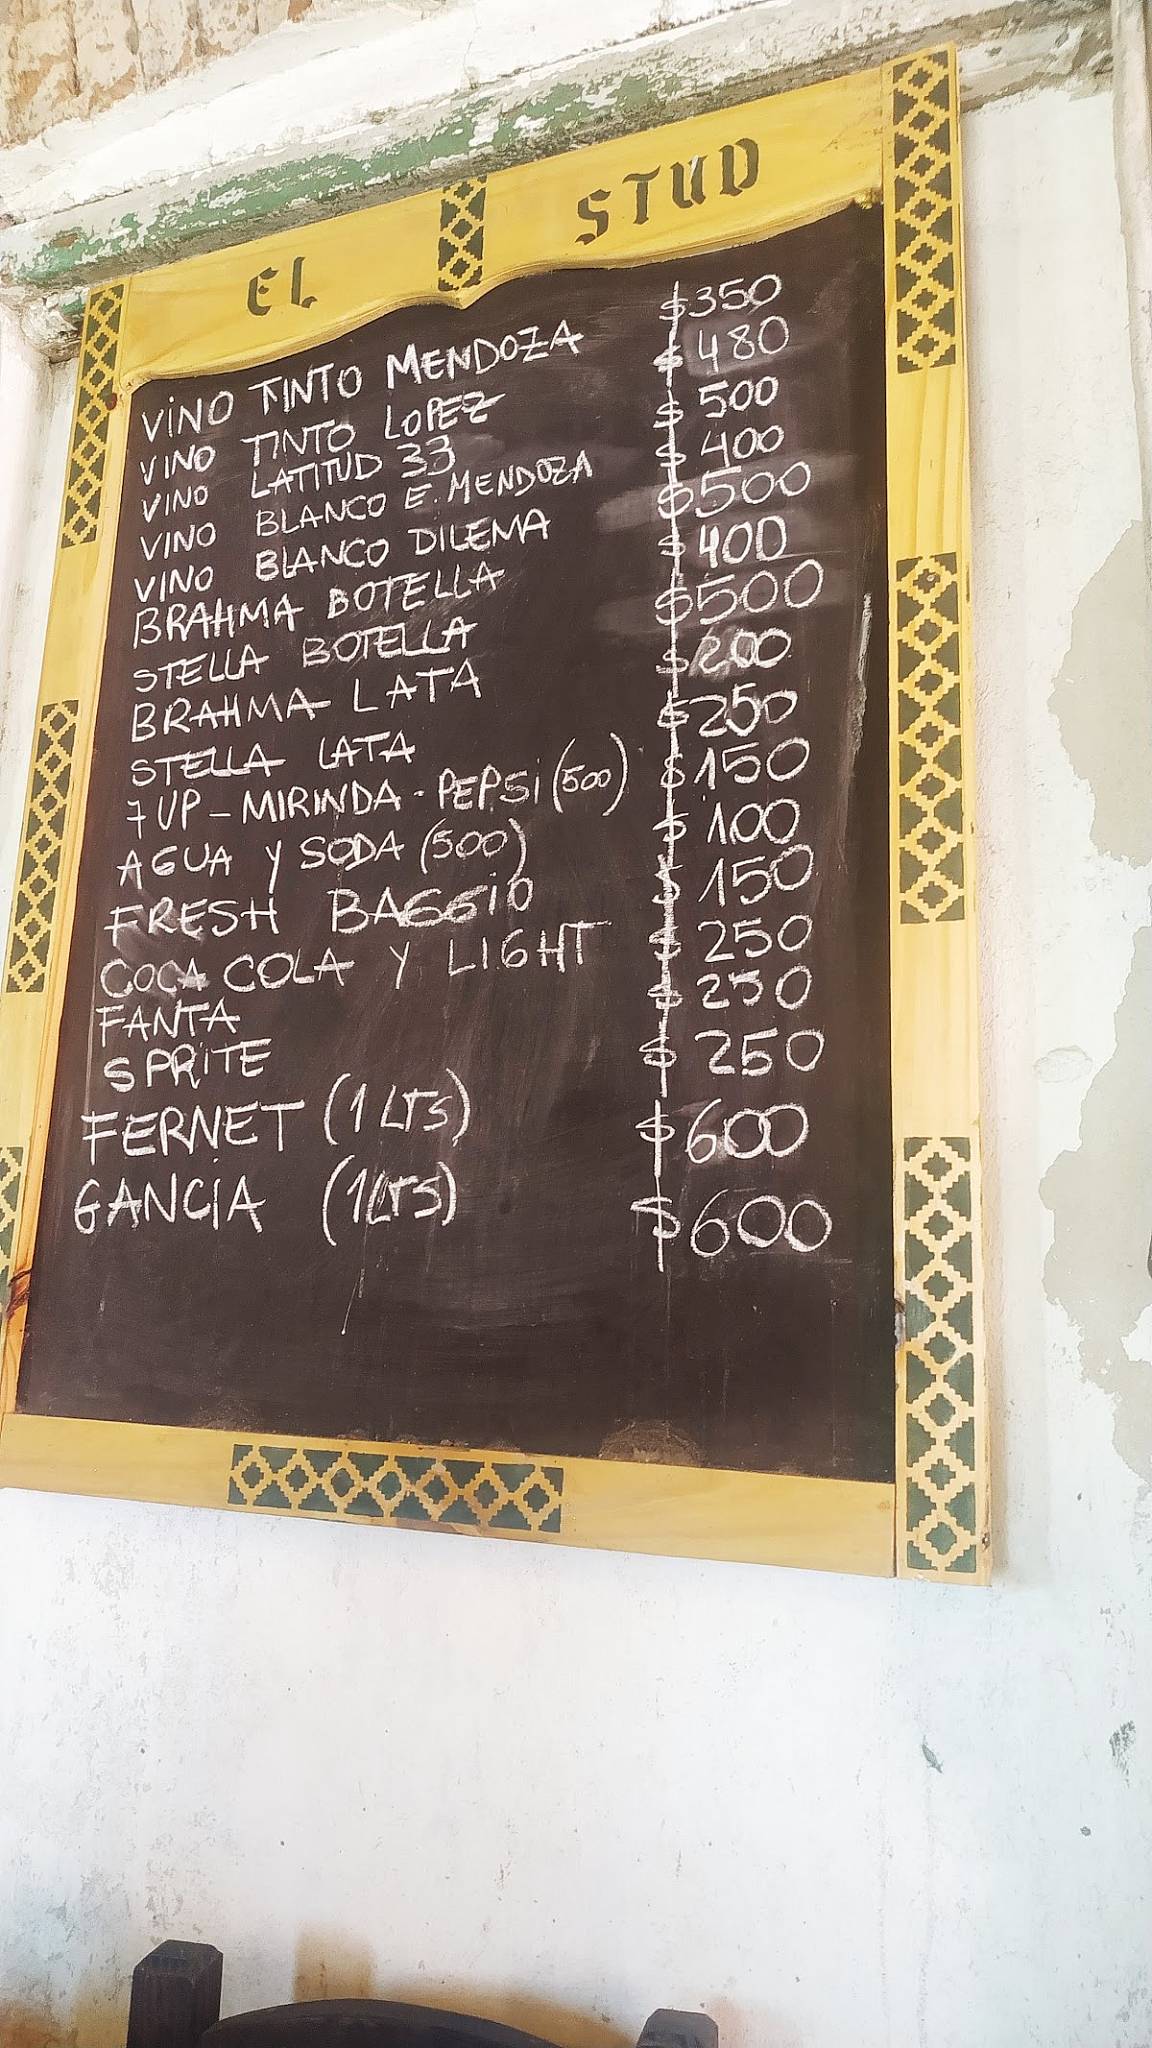 EL STUD
VINO TINTO MENDOZA $350
VINO TINTO LOPEZ $480
VINO LATITUD 33 $500
VINO BLANCO E. MENDOZA $400
VINO BLANCO DILEMA $500
BRAHMA BOTELLA $400
STELLA BOTELLA $500
BRAHMA LATA $200
STELLA LATA $250
7UP - MIRINDA - PEPSI (500) $150
AGUA Y SODA (500) $100
FRESH BAGGIO $150
COCA COLA Y LIGHT $250
FANTA $250
SPRITE $250
FERNET (1 LTS) $600
GANCIA (1LTS) $600